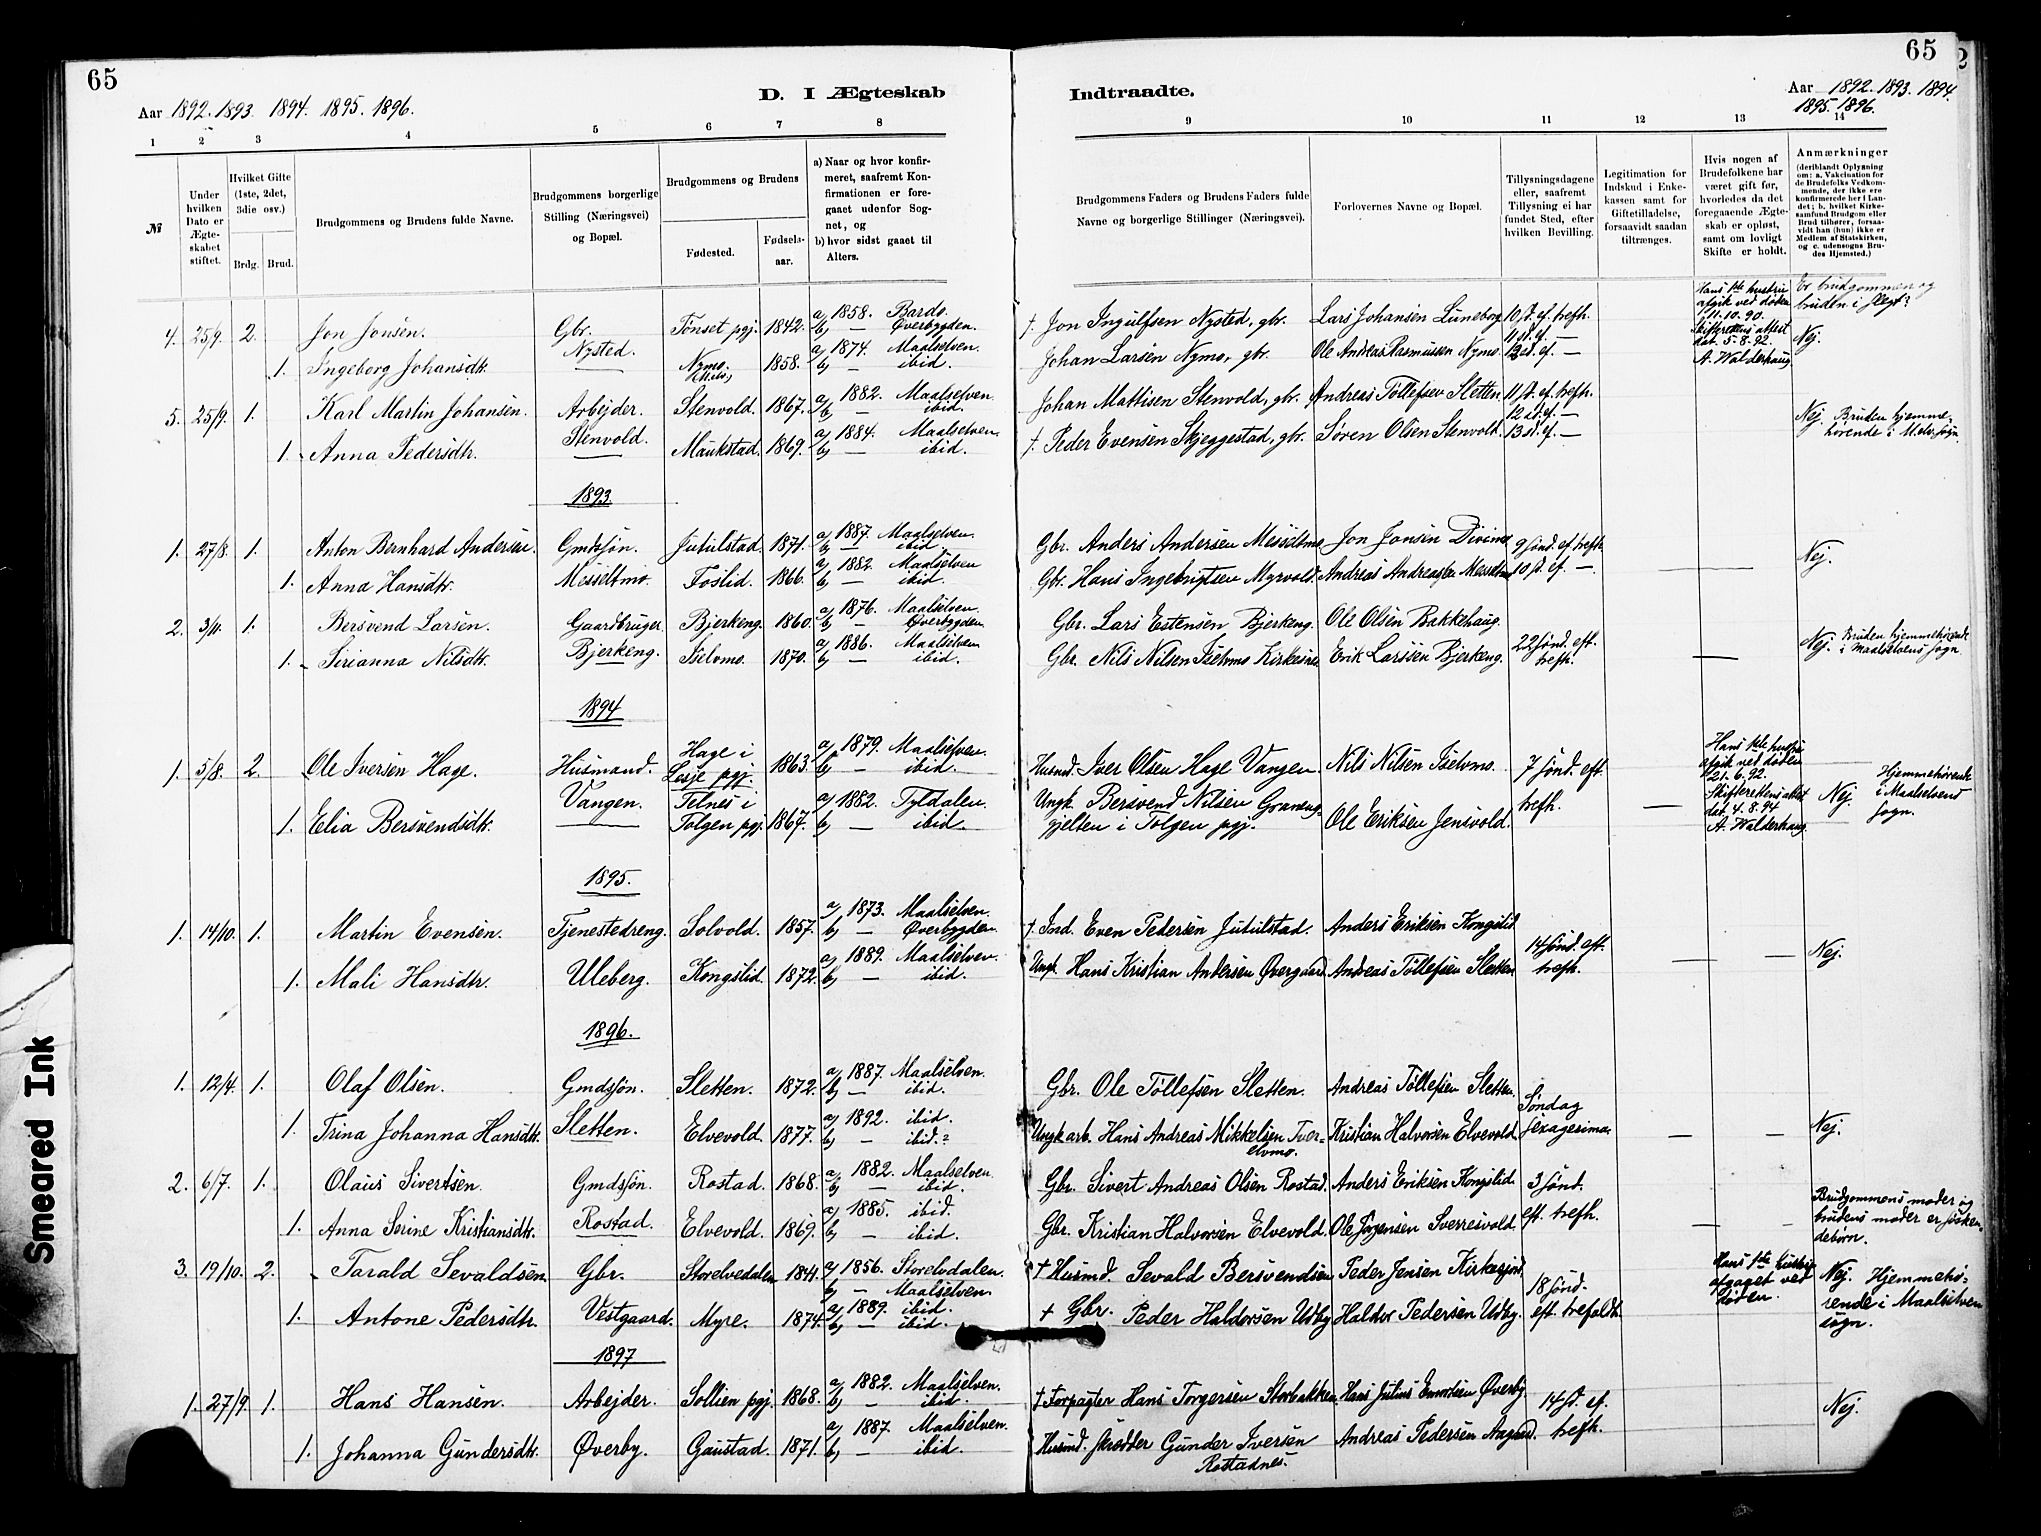 65
Aar 1892. 1893. 1894. 1895. 1896.
D. I Ægteskab
1 2 3 4 5 6 7 8
№
Under hvilken Dato er Ægteskabet stiftet.
Hvilket Gifte (1ste, 2det, 3die osv.)
Brdg. Brud.
Brudgommens og Brudens fulde Navne.
Brudgommens borgerlige Stilling (Næringsvei) og Bopæl.
Brudgommens og Brudens
Fødested. Fødselsaar.
a) Naar og hvor konfirmeret, saafremt Konfirmationen er foregaaet udenfor Sognet, og
b) hvor sidst gaaet til Alters.
4. 25/9. 2. Jon Jonsen. Gbr. Tönset pgj. 1842. a) 1858. Bardo.
Nysted. b) — Øverbygden.
1. Ingeborg Johansdtr. — Nymo. 1858. a) 1874. Maalselven.
b) — ibid.
5. 25/9. 1. Karl Martin Johansen. Arbejder. Stenvold. 1867. a) 1882. Maalselven.
b) — ibid.
Stenvold.
1. Anna Pedersdtr. — Maukstad. 1869. a) 1884. Maalselven.
b) — ibid.
1893.
1. 27/8. 1. Anton Bernhard Andersen. Gmdssøn. Jutulstad. 1871. a) 1887. Maalselven.
b) — ibid.
1. Anna Hansdtr. Messeltmo. Foslid. 1866. a) 1882. Maalselven
b) — ibid.
2. 3/11. 1. Bersvend Larsen. Gaardbruger. Bjerkeng. 1860. a) 1876. Maalselven.
b) — Øverbygden.
1. Sirianna Nilsdtr. Bjerkeng. Iselvmo. 1870. a) 1886. Maalselven
b) — ibid.
1894
1. 5/8. 2. Ole Iversen Hage. Husmand. Hage i Lesje pgj. 1863. a) 1879. Maalselven.
b) — ibid.
Vangen.
1. Elia Bersvendsdtr. — Telnes i Tolgen pgj. 1867. a) 1882. Tyldalen.
b) — ibid.
1895.
1. 14/10. 1. Martin Evensen. Tjenestedreng. Solvold. 1857. a) 1873. Maalselven.
b) — Øverbygden.
1. Mali Hansdtr. Uleberg. Kongslid. 1872. a) 1889. Maalselven.
b) — ibid.
1896.
1. 12/4. 1. Olaf Olsen. Gmdssøn. Sletten. 1872. a) 1887. Maalselven.
b) — ibid.
1. Trina Johanna Hansdtr. Sletten. Elvevold. 1877. a) 1892. ibid.
b) — ibid.?
2. 6/7. 1. Olaus Sivertsen. Gmdssøn. Rostad. 1868. a) 1882. Maalselven.
b) — ibid.
1. Anna Serine Kristiansdtr. Rostad. Elvevold. 1869. a) 1885. ibid.
b) — ibid.
3. 19/10. 2. Tarald Sevaldsen. Gbr. Storelvedalen 1841. a) 1856. Storelvdalen.
b) — Maalselven.
1. Antone Pedersdtr. Vestgaard. Myre. 1874. a) 1889. ibid.
b) — ibid.
1897
1. 27/9. 1. Hans Hansen. Arbejder. Sollien pgj. 1868. a) 1882. Maalselven.
b) — ibid.
1. Johanna Gundersdtr. Øverby. Gaustad. 1871. a) 1887. Maalselven.
b) — ibid.
Smeared Ink
65
Indtraadte.
Aar 1892. 1893. 1894.
1895. 1896.
9 10 11 12 13 14
Brudgommens Faders og Brudens Faders fulde Navne og borgerlige Stillinger (Næringsvei).
Forlovernes Navne og Bopæl.
Tillysningsdagene eller, saafremt Tillysning ei har fundet Sted, efter hvilken Bevilling.
Legitimation for Indskud i Enkekassen samt for Giftetilladelse, forsaavidt saadan tiltrænges.
Hvis nogen af Brudefolkene har været gift før, hvorledes da det foregaaende Ægteskab er opløst, samt om lovligt Skifte er holdt.
Anmærkninger
(deriblandt Oplysning om: a. Vakcination for de Brudefolks Vedkommende, der ikke ere konfirmerede her i Landet; b. hvilket Kirkesamfund Brudgom eller Brud tilhører, forsaavidt han (hun) ikke er Medlem af Statskirken, og c. udensogns Brudes Hjemsted.)
† Jon Ingulfsen Nysted, gbr. Lars Johansen Luneborg 10 s. ef. trefh.
11 s. ef. —
Johan Larsen Nymo, gbr. Ole Andreas Rasmussen Nymo. 12 sd. ef. —
Hans 1ste hustru afgik ved døden 11.10.90. Skifterettens attest dat. 5.8.92. A. Walderhaug.
Er brudgommen og bruden i slegt? Nej.
Johan Mattisen Stenvold, gbr. Andreas Tollefsen Sletten. 11 s. ef. trefh.
12 sd. ef. —
† Peder Evensen Skjeggestad, gbr. Sören Olsen Stenvold. 13 sd. ef. —
Nej. Bruden hjemmehørende i M.elv. sogn.
Gbr. Anders Andersen Messeltmo Jon Jonsen Divimo 9 sønd. ef. trefh.
Gbr. Hans Ingebrigtsen Myrvold. Andreas Andreassen Messeltmo 10 s. ef. — — — Nej.
Gbr. Lars Estensen Bjerkeng. Ole Olsen Bakkehaug.
22 sønd. eft. trefh.
Gbr. Nils Nilsen Iselvmo Kirkesnes Erik Larssen Bjerkeng. — Nej. Bruden hjemmehørende i Maalselvens sogn.
Husmd. Iver Olsen Hage Vangen. Nils Nilsen Iselvmo. 7 sønd. eft. trefh.
Ungk. Bersvend Nilsen
gjelten i Tolgen pgj. Ole Eriksen Jensvold. —
Hans 1ste hustru afgik ved døden 21.6.92. Skifterettens attest dat. 4.8.94 A. Walderhaug.
Nej. Hjemmehørende i Maalselvens sogn.
† Ind. Even Pedersen Jutulstad. Anders Eriksen Kongslid.
14 sønd. eft. trefh.
Ungk. Hans Kristian Andersen Øvergaard Andreas Tollefsen Sletten — — Nej.
Gbr. Ole Tollefsen Sletten. Andreas Tollefsen Sletten.
Søndag sexagesima
Ungk. arb. Hans Andreas Mikkelsen Tverelvmo. Kristian Halvorsen Elvevold. — — Nej.
Gbr. Sivert Andreas Olsen Rostad. Anders Eriksen Kongslid. 3 sønd.
Gbr. Kristian Halvorsen Elvevold. Ole Jörgensen Sverresvold. eft. trefh. — —
Brudgommens moder og brudens moder er søskendebørn.
† Husmd. Sevald Bersvendsen Peder Jensen Kirkesjord.
18 sønd.
† Gbr. Peder Haldorsen Udby Haldor Pedersen Udby. eft. trefoldt.
Hans 1ste hustru afgaaet ved døden.
Nej. Hjemmehørende i Maalselven sogn.
† Forpagter Hans Torgersen Storbakken. Hans Julius Øverby 14 s. ef. trefh.
Husmd. skrædder Gunder Iversen Rostadnes. Andreas Pedersen
Nej.